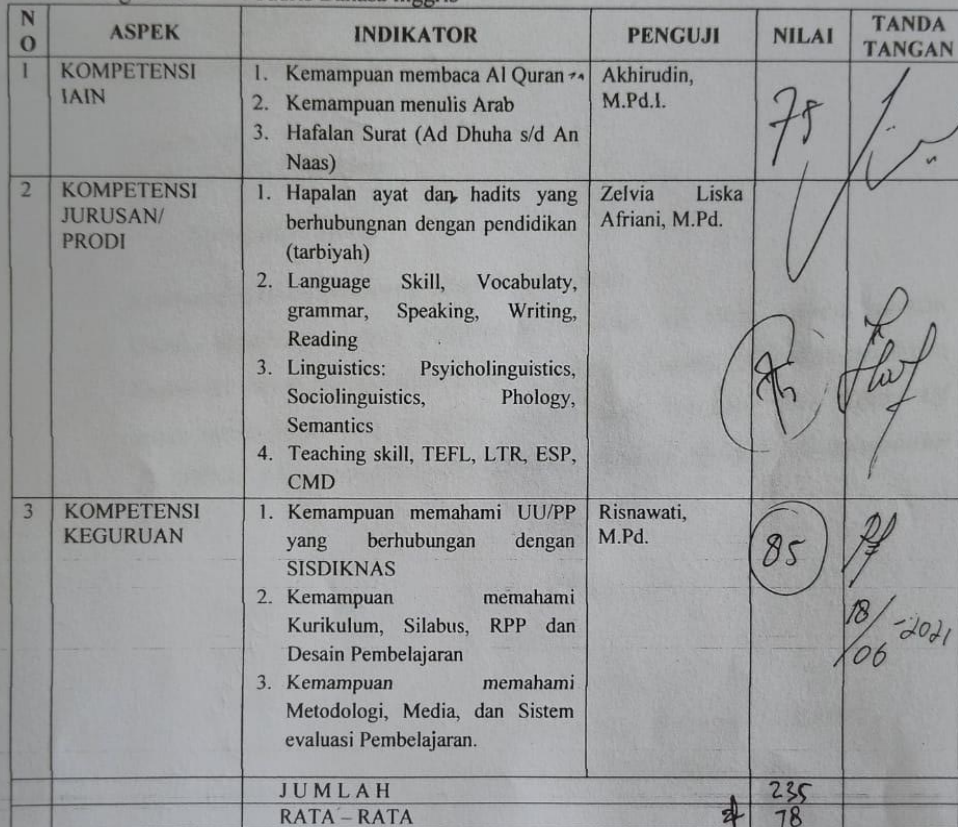 NO ASPEK INDIKATOR PENGUJI NILAI TANDA TANGAN
1 KOMPETENSI IAIN
1. Kemampuan membaca Al Quran
2. Kemampuan menulis Arab
3. Hafalan Surat (Ad Dhuha s/d An
Naas)
Akhirudin,
M.Pd.I.
2 KOMPETENSI
JURUSAN/
PRODI
1. Hapalan ayat dan hadits yang
berhubungnan dengan pendidikan
(tarbiyah)
2. Language Skill, Vocabulaty,
grammar, Speaking, Writing,
Reading
3. Linguistics: Psyicholinguistics,
Sociolinguistics, Phology,
Semantics
4. Teaching skill, TEFL, LTR, ESP,
CMD
Zelvia Liska
Afriani, M.Pd.
3 KOMPETENSI
KEGURUAN
1. Kemampuan memahami UU/PP
yang berhubungan dengan
SISDIKNAS
2. Kemampuan memahami
Kurikulum, Silabus, RPP dan
Desain Pembelajaran
3. Kemampuan memahami
Metodologi, Media, dan Sistem
evaluasi Pembelajaran.
Risnawati,
M.Pd.
85
18/06-2021
JUMLAH 235
RATA – RATA 78